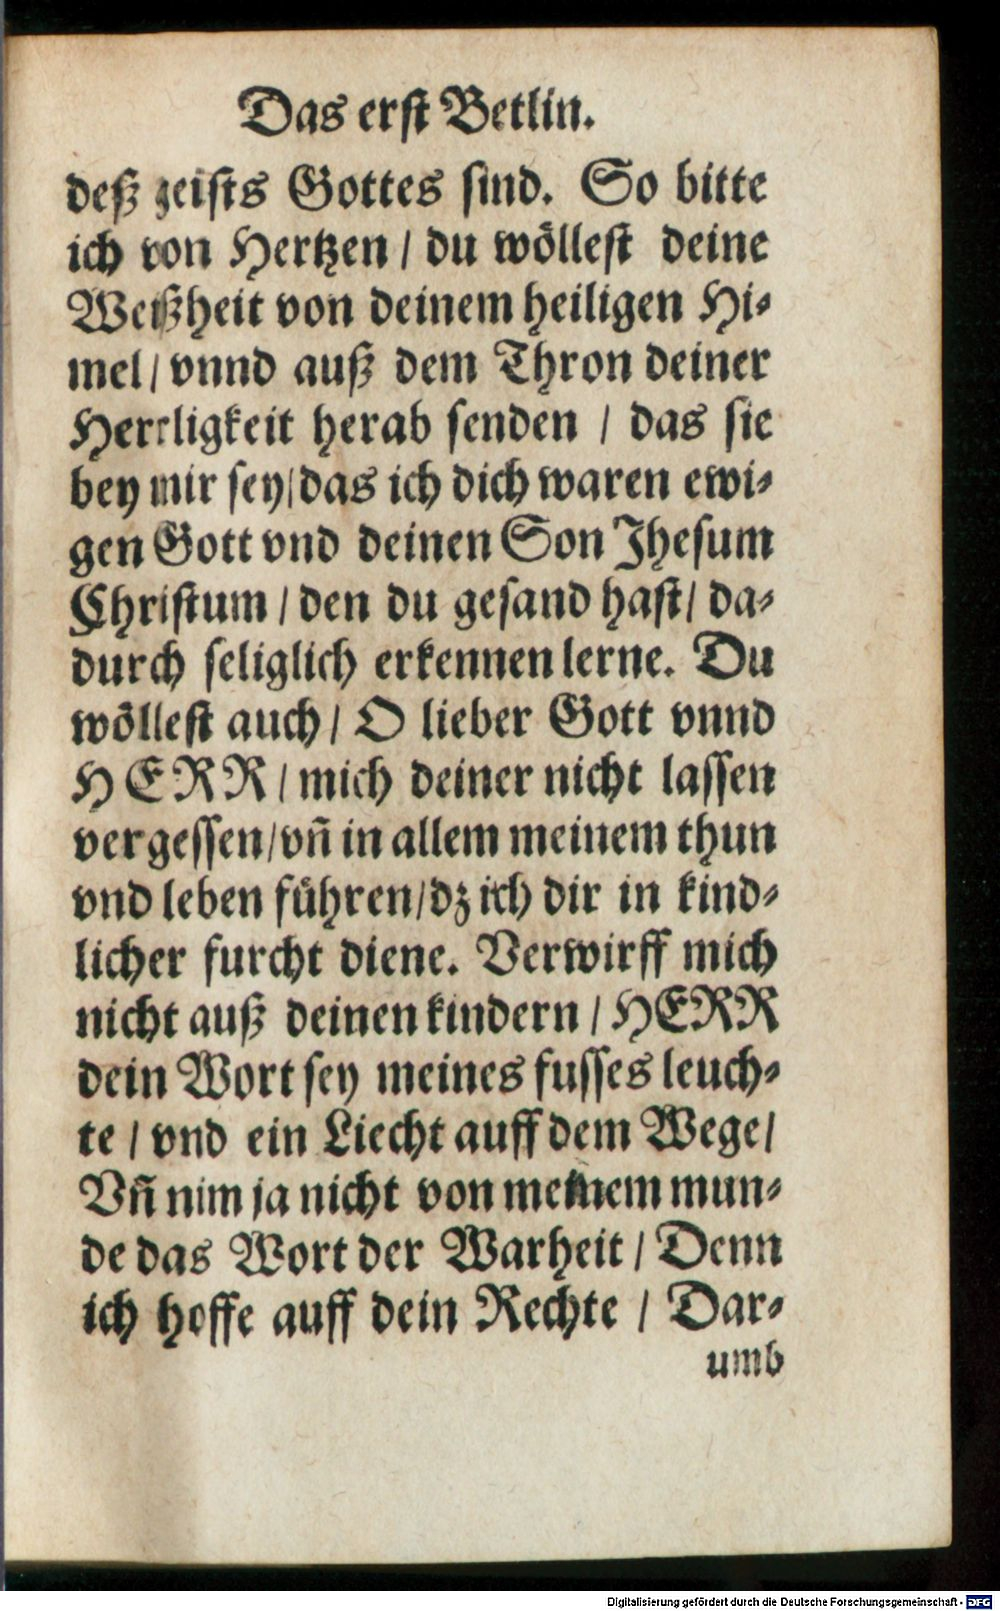 Das erst Betlin.
deß geists Gottes sind. So bitte
ich von Hertzen / du wöllest deine
Weißheit von deinem heiligen Hi-
mel / vnnd auß dem Thron deiner
Herrligkeit herab senden / das sie
bey mir sey / das ich dich waren ewi-
gen Gott vnd deinen Son Jhesum
Christum / den du gesand hast / da-
durch seliglich erkennen lerne. Du
wöllest auch / O lieber Gott vnnd
HERR / mich deiner nicht lassen
vergessen / vñ in allem meinem thun
vnd leben führen / dz ich dir in kind-
licher furcht diene. Verwirff mich
nicht auß deinen kindern / HERR
dein Wort sey meines fusses leuch-
te / vnd ein Liecht auff dem Wege /
Vñ nim ja nicht von meinem mun-
de das Wort der Warheit / Denn
ich hoffe auff dein Rechte / Dar-
umb
Digitalisierung gefördert durch die Deutsche Forschungsgemeinschaft - DFG